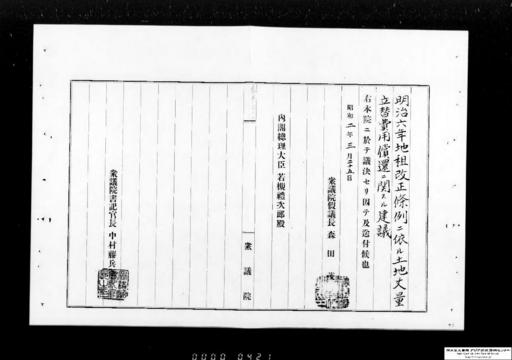 明治六年地租改正條例ニ依ル土地丈量
立替費用償還ニ関スル建議
右本院ニ於テ議決セリ因テ及送付候也
昭和二年三月二十五日
衆議院假議長 森田茂
內閣總理大臣 若槻禮次郎殿
衆議院
衆議院書記官長 中村藤兵
0000 0421